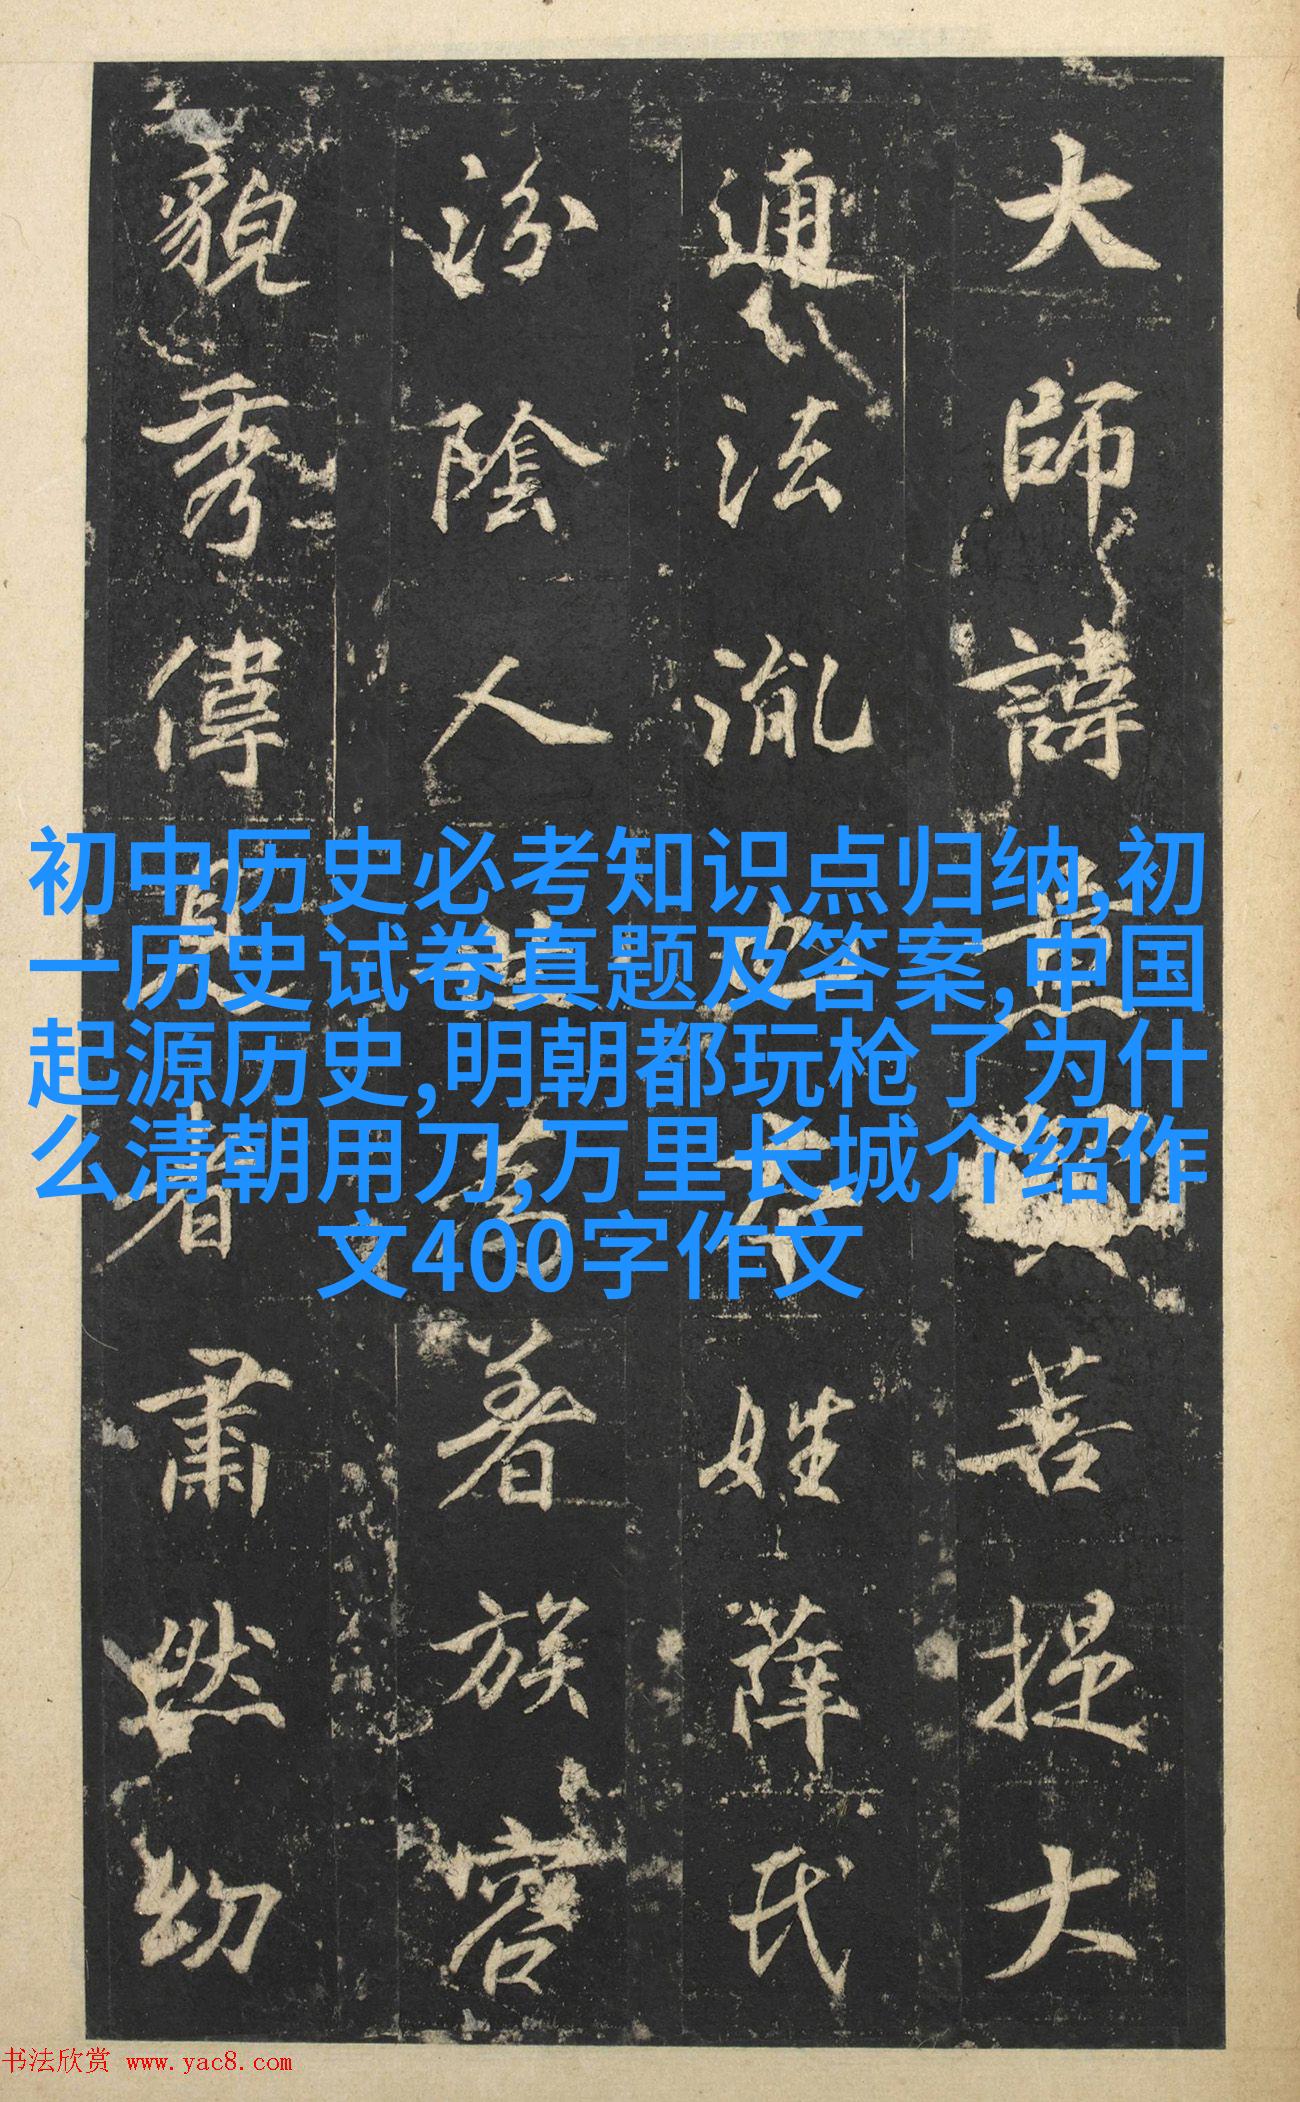 大師諱菩提大
通法也姓薛氏
汾陰人著族容
貌秀偉見者肅然幼
初中历史必考知识点归纳,初
一历史试卷真题及答案,中国
起源历史,明朝都玩枪了为什
么清朝用刀,万里长城介绍作
文400字作文
书法欣赏 www.yac8.com